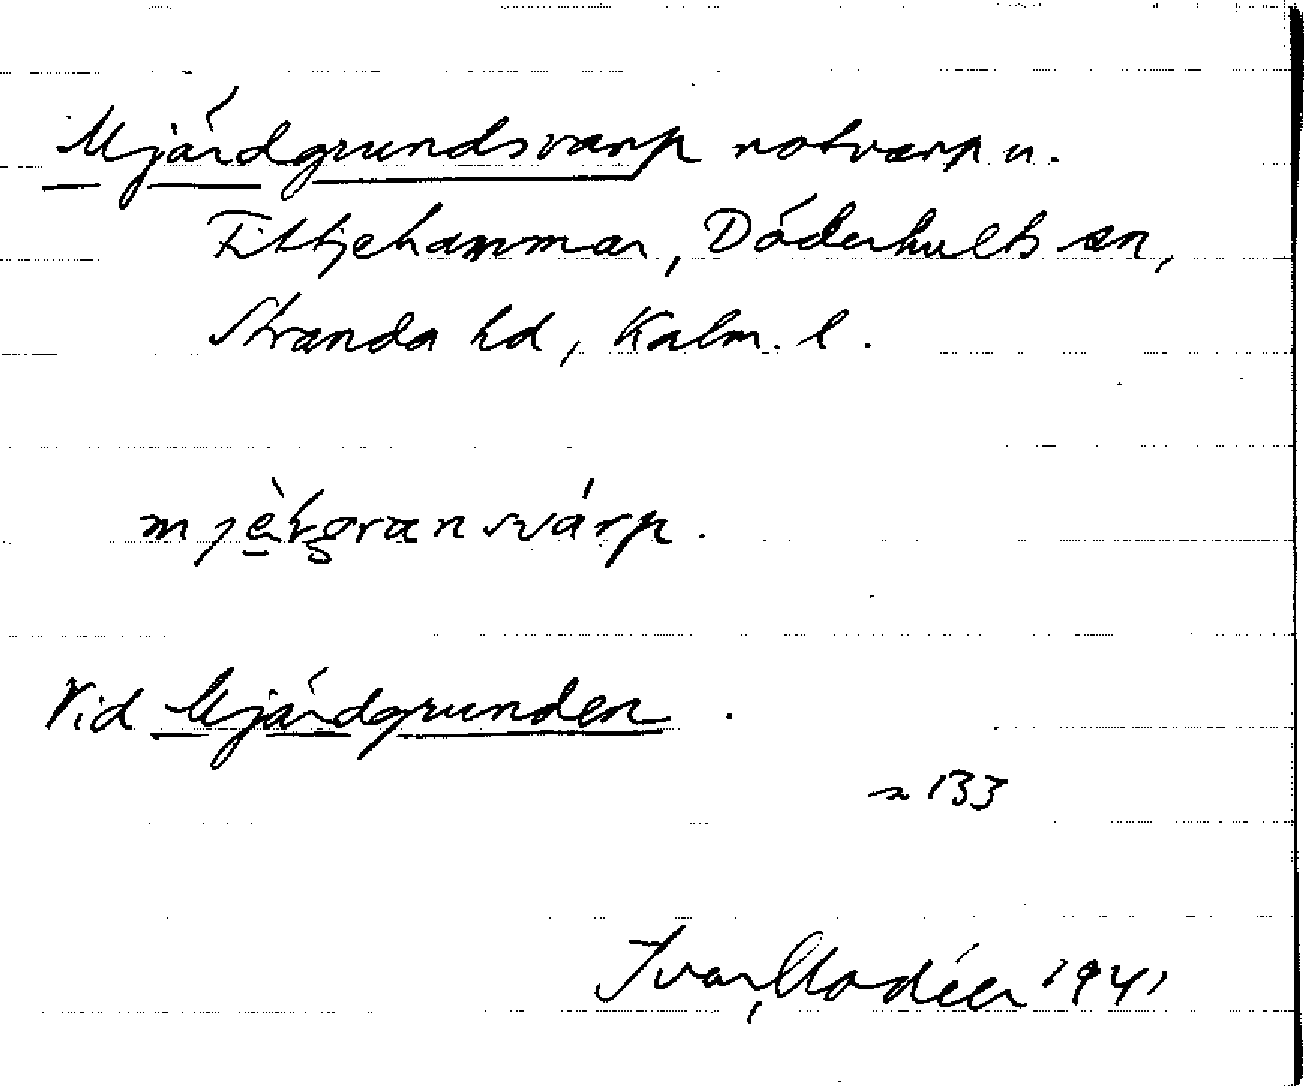 Mjärdgrundsvarp notvarp u.
Fittjehammar, Döderhults sn,
Stranda hd, Kalm. l.
Vid Mjärdgrunden.
s 133
Ivar Modéer 1941